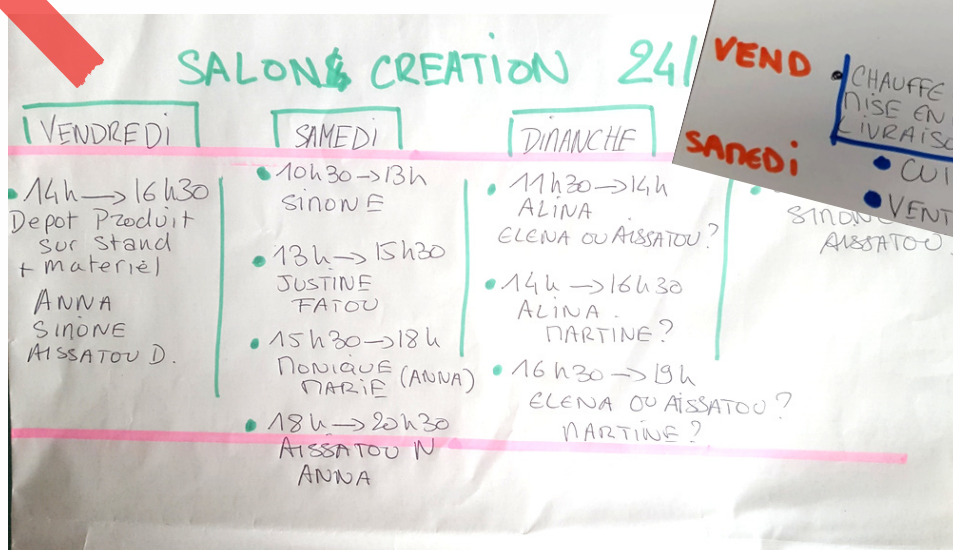 SALON CREATION 24/
VENDREDI
14h → 16h30
Depot Produit
sur stand
+ materiel
ANNA
SIMONE
AISSATOU D.
SAMEDI
10h30 → 13h
SIMONE
13h → 15h30
JUSTINE
FATOU
15h30 → 18h
MONIQUE
MARIE (ANNA)
18h → 20h30
AISSATOU N
ANNA
DIMANCHE
11h30 → 14h
ALINA
ELENA OU AISSATOU ?
14h → 16h30
ALINA.
MARTINE ?
16h30 → 19h
ELENA OU AISSATOU ?
MARTINE ?
AISSATOU
VEND
CHAUFFE
MISE EN
SAMEDI